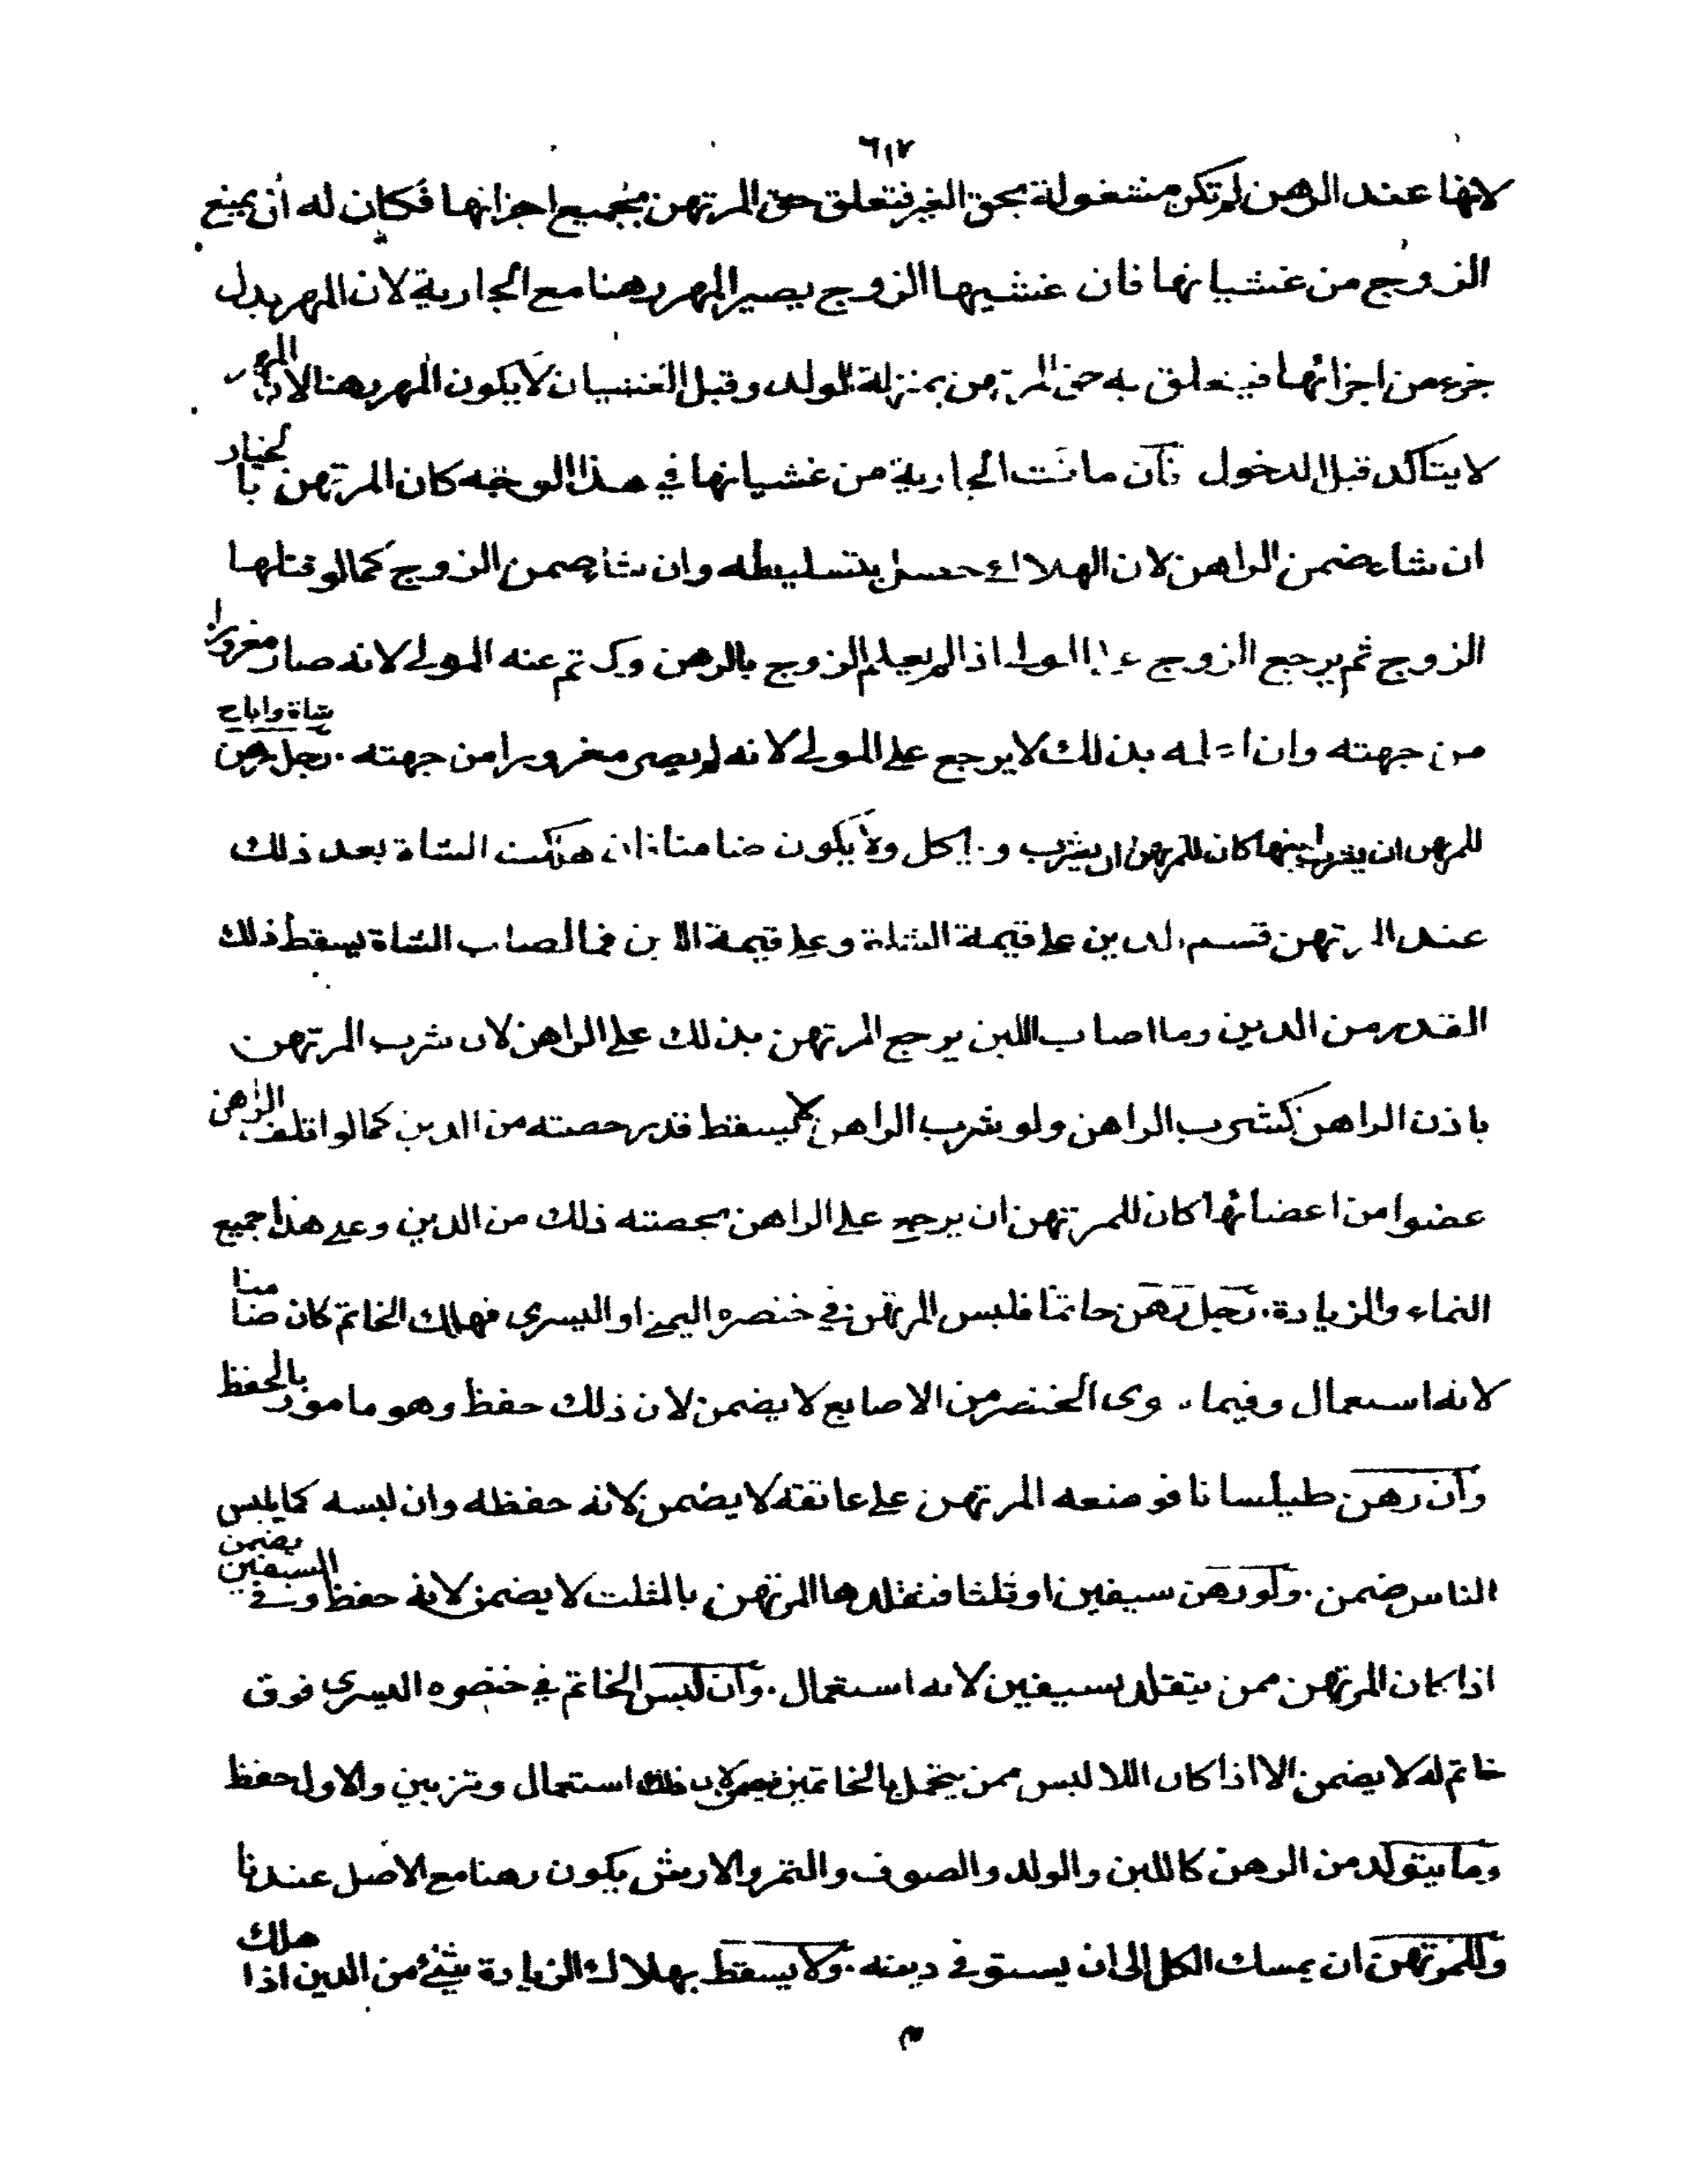 ٦١٧
لانها عند الرهن لم تكن مشغولة بحق الغير فتعلق حق المرتهن بجميع اجزائها فكان له ان يمنع
الزوج من غشيانها فان غشيها الزوج يصير المهر رهنا مع الجارية لان المهر بدل
جزء من اجزائها فيتعلق به حق المرتهن بمنزلة الولد وقبل الغشيان لا يكون المهر رهنا لان المهر
لا يتأكد قبل الدخول فان ماتت الجارية من غشيانها في هذا الوجه كان المرتهن بالخيار
ان شاء ضمن الراهن لان الهلاك حصل بتسليطه وان شاء ضمن الزوج كما لو قتلها
الزوج ثم يرجع الزوج على المولى اذا لم يعلم الزوج بالرهن وكتم عنه المولى لانه صار مغرورا
من جهته وان اعلمه بذلك لا يرجع على المولى لانه لم يصر مغرورا من جهته . رجل رهن شاة واباح
للمرتهن ان يشرب لبنها كان للمرتهن ان يشرب وياكل ولا يكون ضامنا فان هلكت الشاة بعد ذلك
عند المرتهن قسم الدين على قيمة الشاة وعلى قيمة اللبن فما اصاب الشاة يسقط ذلك
القدر من الدين وما اصاب اللبن يرجع المرتهن بذلك على الراهن لان شرب المرتهن
باذن الراهن كشرب الراهن ولو شرب الراهن لا يسقط قدر حصته من الدين كما لو اتلف الراهن
عضوا من اعضائها كان للمرتهن ان يرجع على الراهن بحصته ذلك من الدين وعلى هذا جميع
النماء والزيادة . رجل رهن خاتما فلبس المرتهن في خنصره اليمنى او اليسرى فهلك الخاتم كان ضامنا
لانه استعمال وفيما سوى الخنصر من الاصابع لا يضمن لان ذلك حفظ وهو مامور بالحفظ
وان رهن طيلسانا فوضعه المرتهن على عاتقه لا يضمن لانه حفظه وان لبسه كما يلبس
الناس ضمن . ولو رهن سيفين او ثلثا فتقلدها المرتهن بالثلث لا يضمن لانه حفظ وفي السيفين يضمن
اذا كان المرتهن ممن يتقلد بسيفين لانه استعمال . وان لبس الخاتم في خنصره اليسرى فوق
خاتم له لا يضمن الا اذا كان اللابس ممن يتجمل بالخاتمين فيضمن لان ذلك استعمال وتزيين والاول حفظ
وما يتولد من الرهن كاللبن والولد والصوف والثمر والارش يكون رهنا مع الاصل عندنا
وللمرتهن ان يمسك الكل الى ان يستوفي دينه . ولا يسقط بهلاك الزيادة شيء من الدين اذا هلك